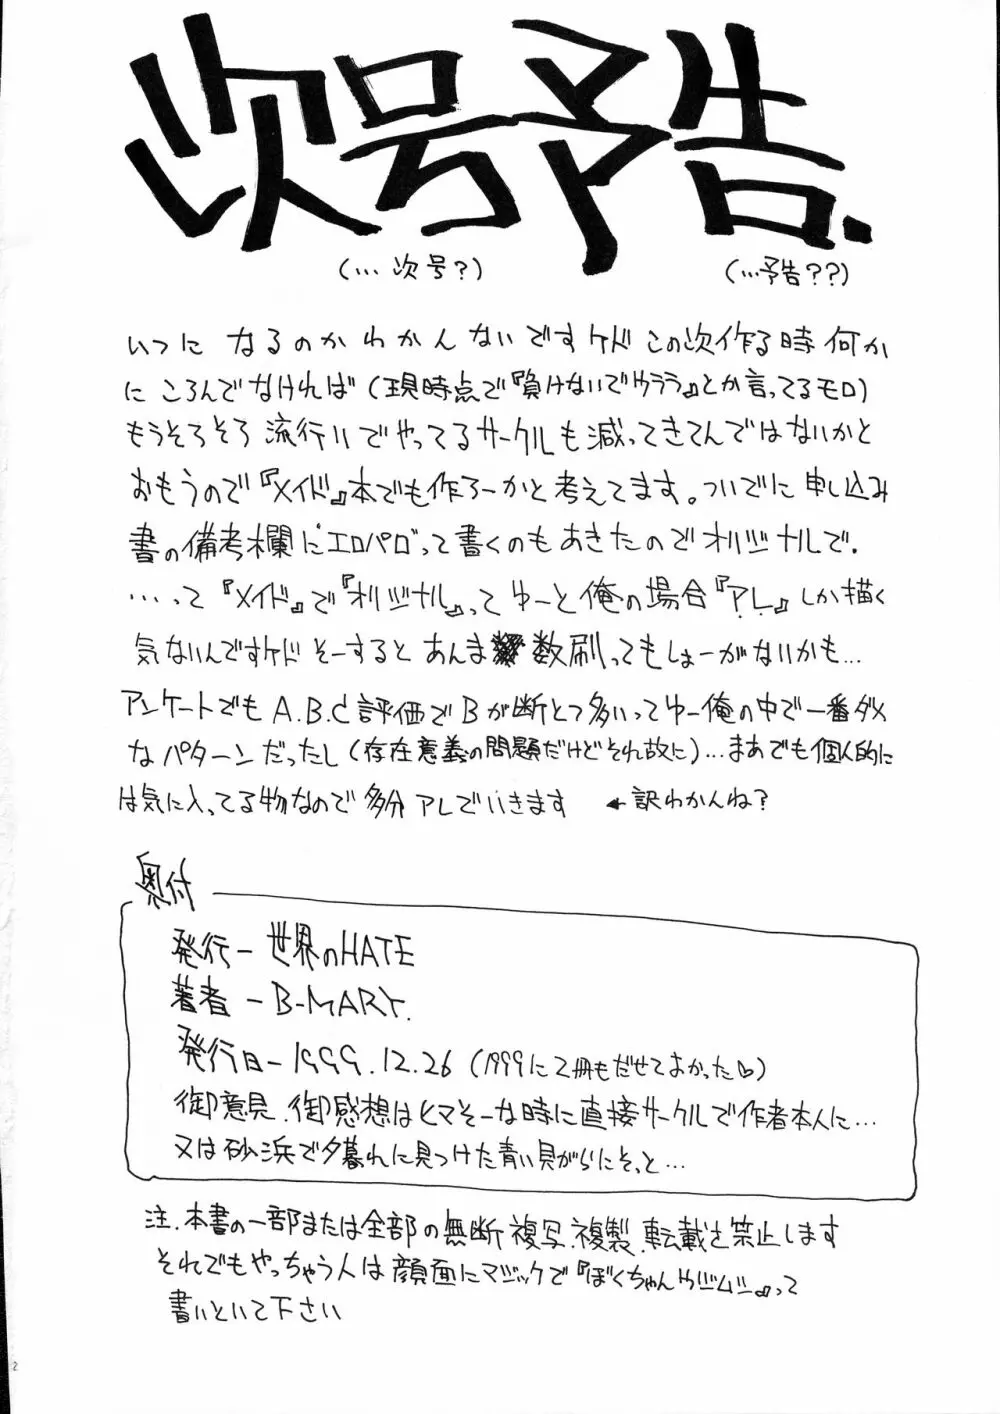 次号予告.
(…次号?) (…予告??)
いつに なるのかわかんないですケド この次作る時 何か
に ころんでなければ (現時点で『負けないでウララ』とか言ってるモロ)
もうそろそろ 流行りでやってるサークルも減ってきてんではないかと
おもうので『メイド』本でも作ろーかと考えてます。ついでに申し込み
書の備考欄にエロパロって書くのもあきたのでオリジナルで.
…って『メイド』で『オリジナル』ってゆーと俺の場合『アレ』しか描く
気ないんですケド そーすると あんま数刷ってもしょーがないかも…
アンケートでも A.B.C評価でBが断とつ多いってゆー俺の中で一番ダメ
なパターンだったし (存在意義の問題だけどそれ故に)…まあでも個人的に
は気に入ってる物なので多分アレでいきます ←訳わかんね?
奥付
発行ー世界のHATE
著者ーB-MARY.
発行日ー1999.12.26 (1999に2冊もだせてよかった♡)
御意見.御感想はヒマそーな時に直接サークルで作者本人に…
又は砂浜で夕暮れに見つけた青い貝がらにそっと…
注.本書の一部または全部の無断複写.複製.転載を禁止します
それでもやっちゃう人は顔面にマジックで『ぼくちゃん』って
書いといて下さい
2